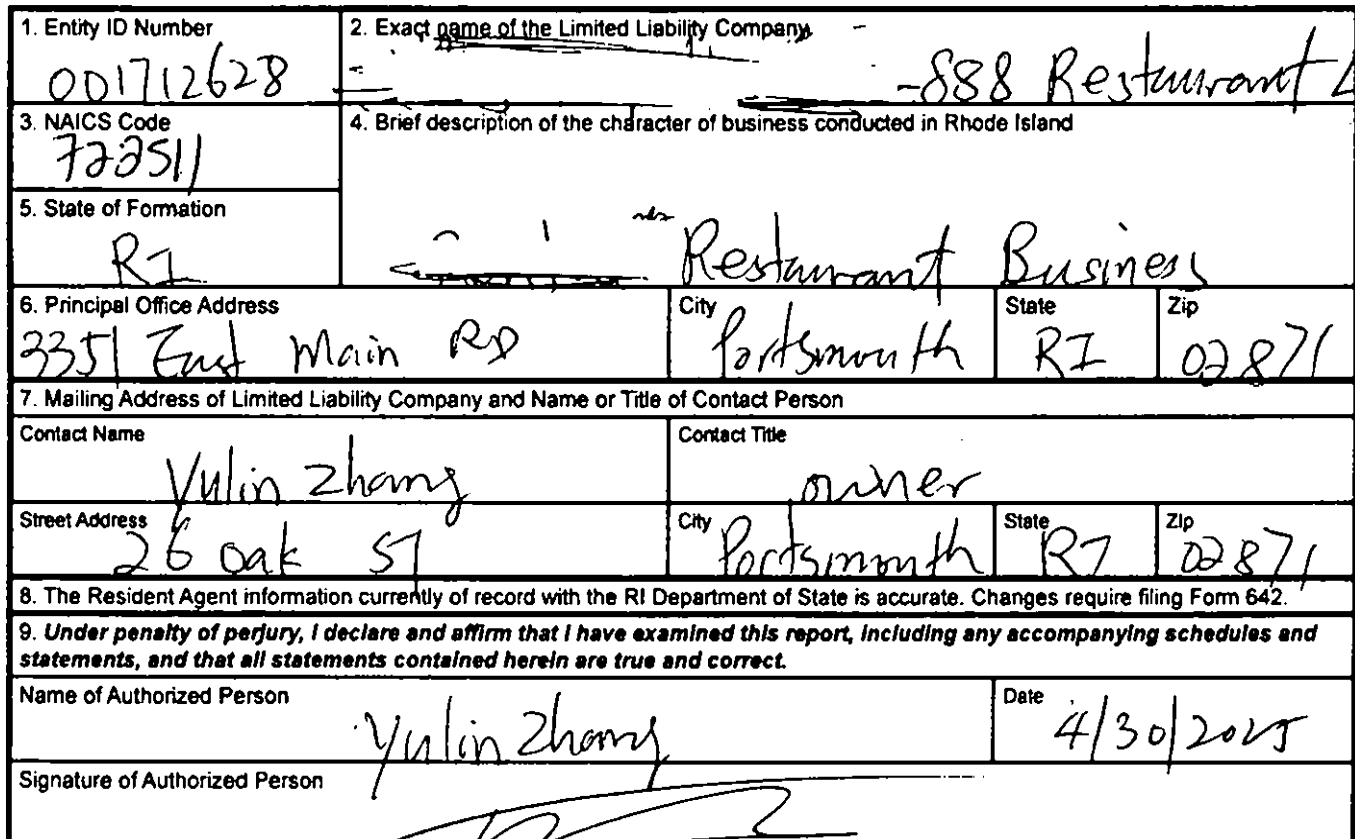 1. Entity ID Number
001712628
2. Exact name of the Limited Liability Company
-888 Restaurant L
3. NAICS Code
722511
4. Brief description of the character of business conducted in Rhode Island
Restaurant Business
5. State of Formation
RI
6. Principal Office Address
3351 East Main RD
City
Portsmouth
State
RI
Zip
02871
7. Mailing Address of Limited Liability Company and Name or Title of Contact Person
Contact Name
Yulin Zhang
Contact Title
owner
Street Address
26 Oak ST
City
Portsmouth
State
RI
Zip
02871
8. The Resident Agent information currently of record with the RI Department of State is accurate. Changes require filing Form 642.
9. Under penalty of perjury, I declare and affirm that I have examined this report, including any accompanying schedules and
statements, and that all statements contained herein are true and correct.
Name of Authorized Person
Yulin Zhang
Date
4/30/2025
Signature of Authorized Person